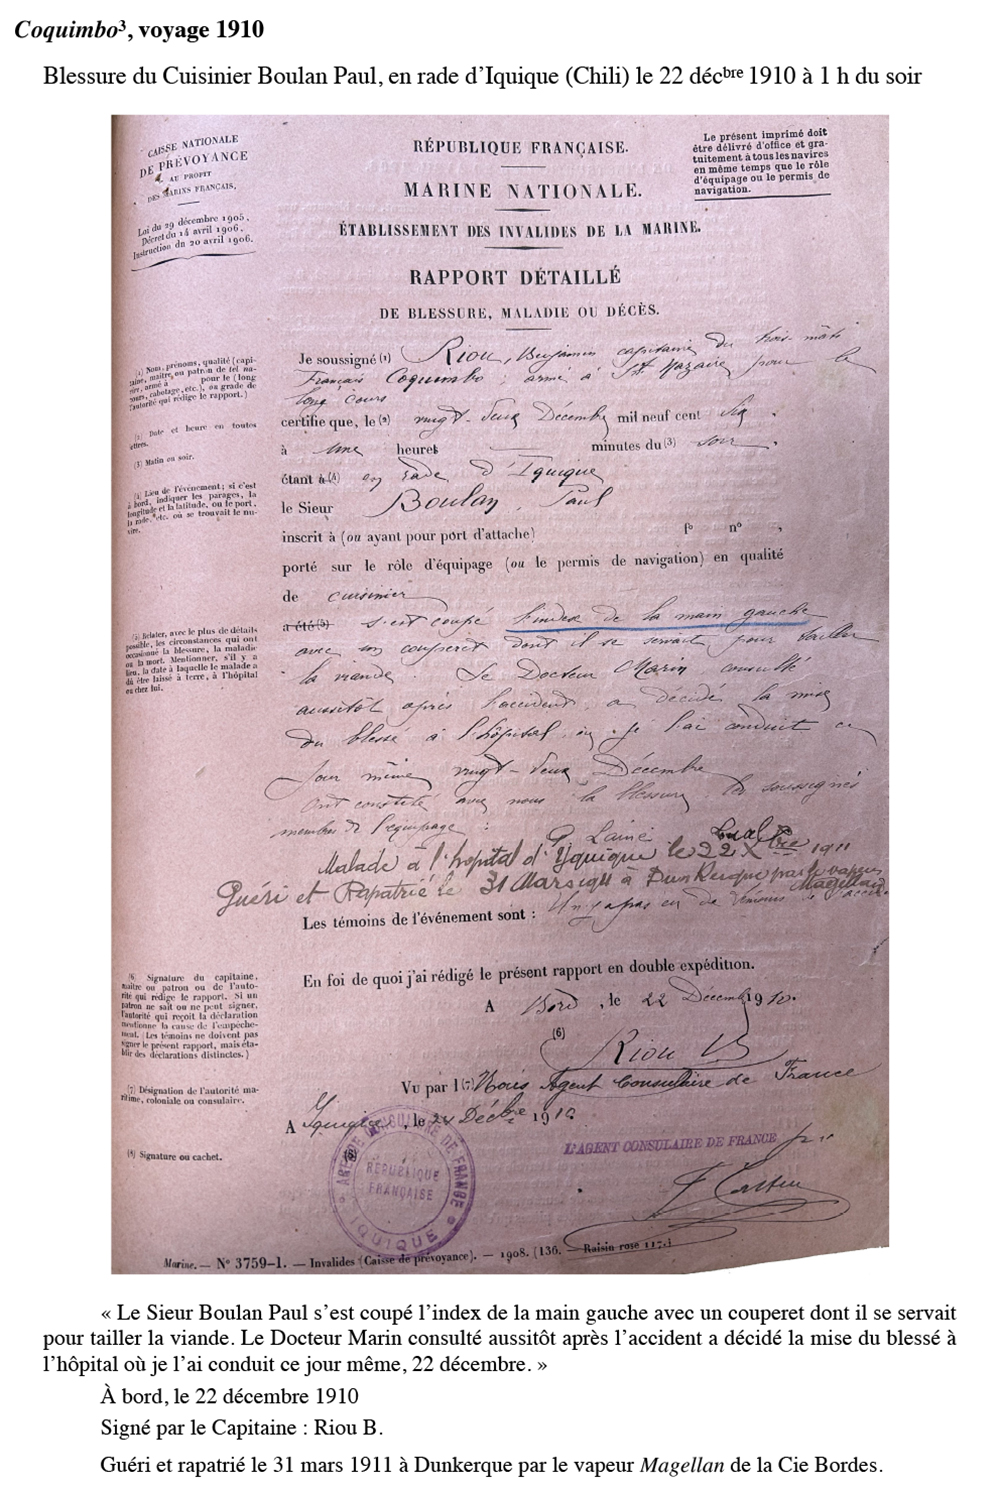 Coquimbo³, voyage 1910
Blessure du Cuisinier Boulan Paul, en rade d’Iquique (Chili) le 22 décbre 1910 à 1 h du soir
CAISSE NATIONALE
DE PRÉVOYANCE
AU PROFIT
DES MARINS FRANÇAIS.
Loi du 29 décembre 1905.
Décret du 14 avril 1906.
Instruction du 20 avril 1906.
RÉPUBLIQUE FRANÇAISE.
MARINE NATIONALE.
ÉTABLISSEMENT DES INVALIDES DE LA MARINE.
Le présent imprimé doit
être délivré d'office et gra-
tuitement à tous les navires
en même temps que le rôle
d'équipage ou le permis de
navigation.
RAPPORT DÉTAILLÉ
DE BLESSURE, MALADIE OU DÉCÈS.
(1) Nom, prénoms, qualité (capi-
taine, maître, ou patron de tel na-
vire, armé à pour le (long
cours, cabotage, etc.), ou grade de
l'autorité qui rédige le rapport.)
Je soussigné (1) Riou, Benjamin capitaine du trois mâts
Français Coquimbo, armé à St Nazaire pour le
long cours
(2) Date et heure en toutes
lettres.
certifie que, le (2) vingt-deux Décembre mil neuf cent dix.
(3) Matin ou soir.
à une heures minutes du (3) soir.
(4) Lieu de l'événement; si c'est
à bord, indiquer les parages, la
longitude et la latitude, ou le port,
la rade, etc. où se trouvait le na-
vire.
étant à (4) en rade d'Iquique
le Sieur Boulan, Paul
inscrit à (ou ayant pour port d'attache) fº nº ,
porté sur le rôle d'équipage (ou le permis de navigation) en qualité
de cuisinier
(5) Relater, avec le plus de détails
possible, les circonstances qui ont
occasionné la blessure, la maladie
ou la mort. Mentionner, s'il y a
lieu, la date à laquelle le malade a
dû être laissé à terre, à l'hôpital
ou chez lui.
a été (5) s'est coupé l'index de la main gauche
avec un couperet dont il se servait pour tailler
la viande. Le Docteur Marin consulté
aussitôt après l'accident a décidé la mise
du blessé à l'hôpital où je l'ai conduit ce
jour même vingt-deux Décembre
Ont constaté avec nous la blessure, les soussignés
membres de l'équipage :
G. Lainé
Malade à l'hopital d'Yquique le 22 Xbre 1911
Guéri et Rapatrié le 31 Mars 1911 à Dunkerque par le vapeur
Magellan
Les témoins de l'événement sont : Il n'y a pas eu de témoins de l'accident
(6) Signature du capitaine,
maître ou patron ou de l'auto-
rité qui rédige le rapport. Si un
patron ne sait ou ne peut signer,
l'autorité qui reçoit la déclaration
mentionne la cause de l'empêche-
ment. (Les témoins ne doivent pas
signer le présent rapport, mais éta-
blir des déclarations distinctes.)
En foi de quoi j'ai rédigé le présent rapport en double expédition.
A Bord, le 22 Décembre 1910.
(6)
Riou B
(7) Désignation de l'autorité ma-
ritime, coloniale ou consulaire.
Vu par (7) Nous Agent Consulaire de France
A Iquique, le 24 Décbre 1910
(8) Signature ou cachet.
L'AGENT CONSULAIRE DE FRANCE
AGENCE CONSULAIRE DE FRANCE
RÉPUBLIQUE
FRANÇAISE
IQUIQUE
Marine. — Nº 3759-1. — Invalides (Caisse de prévoyance). — 1908. (136. — Raisin rose 117.)
« Le Sieur Boulan Paul s’est coupé l’index de la main gauche avec un couperet dont il se servait
pour tailler la viande. Le Docteur Marin consulté aussitôt après l’accident a décidé la mise du blessé à
l’hôpital où je l’ai conduit ce jour même, 22 décembre. »
À bord, le 22 décembre 1910
Signé par le Capitaine : Riou B.
Guéri et rapatrié le 31 mars 1911 à Dunkerque par le vapeur Magellan de la Cie Bordes.